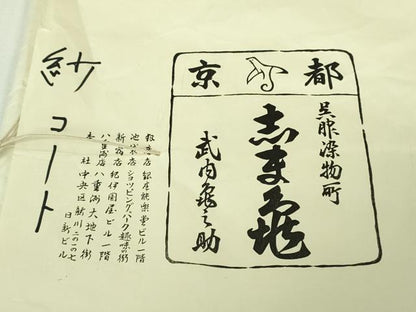 京都
呉服染物町
志ま亀
武内亀之助
銀座店 銀座能楽堂ビル一階
池袋店 ショッピングパーク趣味の街
新宿店 紀伊國屋ビル一階
八重洲店 八重洲大地下街
本社 中央区新川二の一の七
日新ビル
紗コート